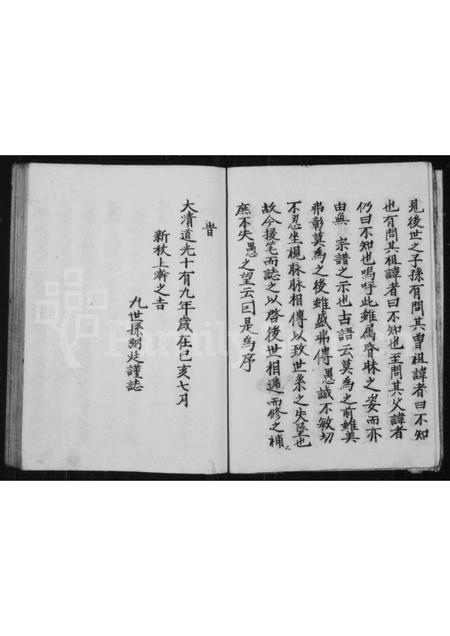 見後世之子孫有問其曾祖諱者曰不知
也有問其祖諱者曰不知也至問其父諱者
仍曰不知也嗚呼此雖屬昏昧之姿而亦
由無 宗譜之示也古語云莫為之前雖美
弗彰莫為之後雖盛弗傳愚誠不敏切
不忍坐視脉脉相傳以致世系之失墜也
故今援笔而誌之以啓後世相遞而修之補
庶不失愚之望云因是為序
旹
大清道光十有九年歲在己亥七月
新秋上澣之吉
九世孫 廷謹誌
FamilySearch